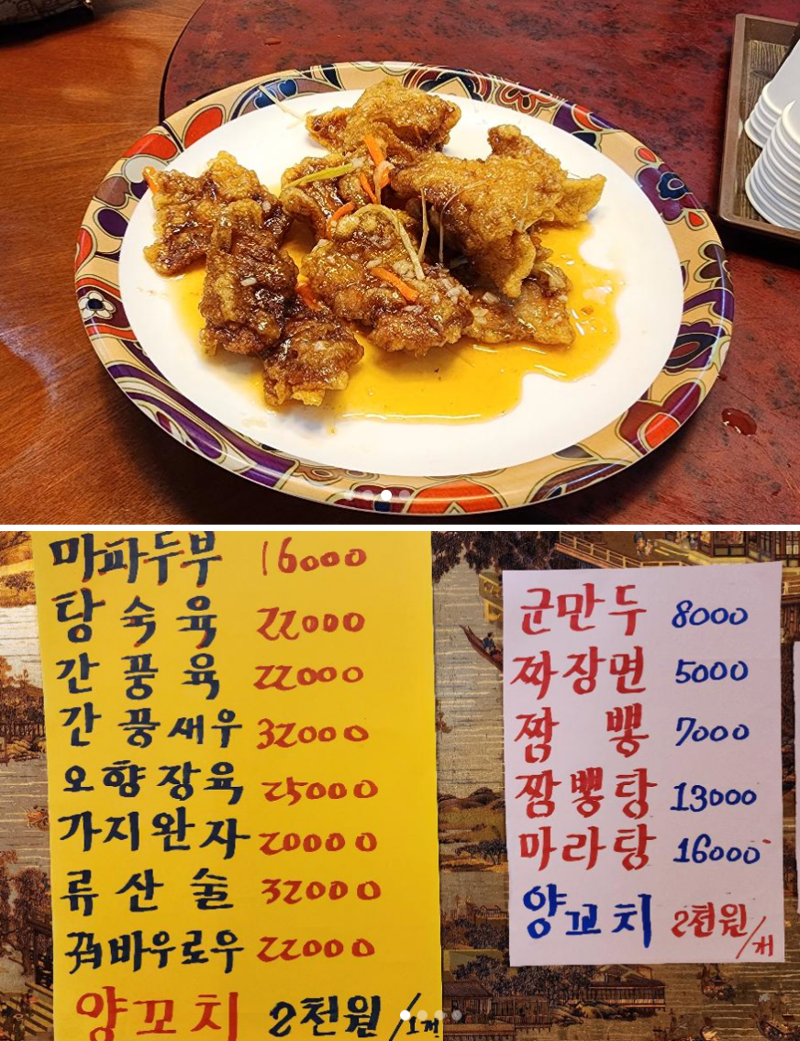 마파두부 16000
탕숙육 22000
간풍육 22000
간풍새우 32000
오향장육 25000
가지완자 20000
류산술 32000
꿔바우로우 22000
양꼬치 2천원/1개
군만두 8000
짜장면 5000
짬뽕 7000
짬뽕탕 13000
마라탕 16000
양꼬치 2천원/개